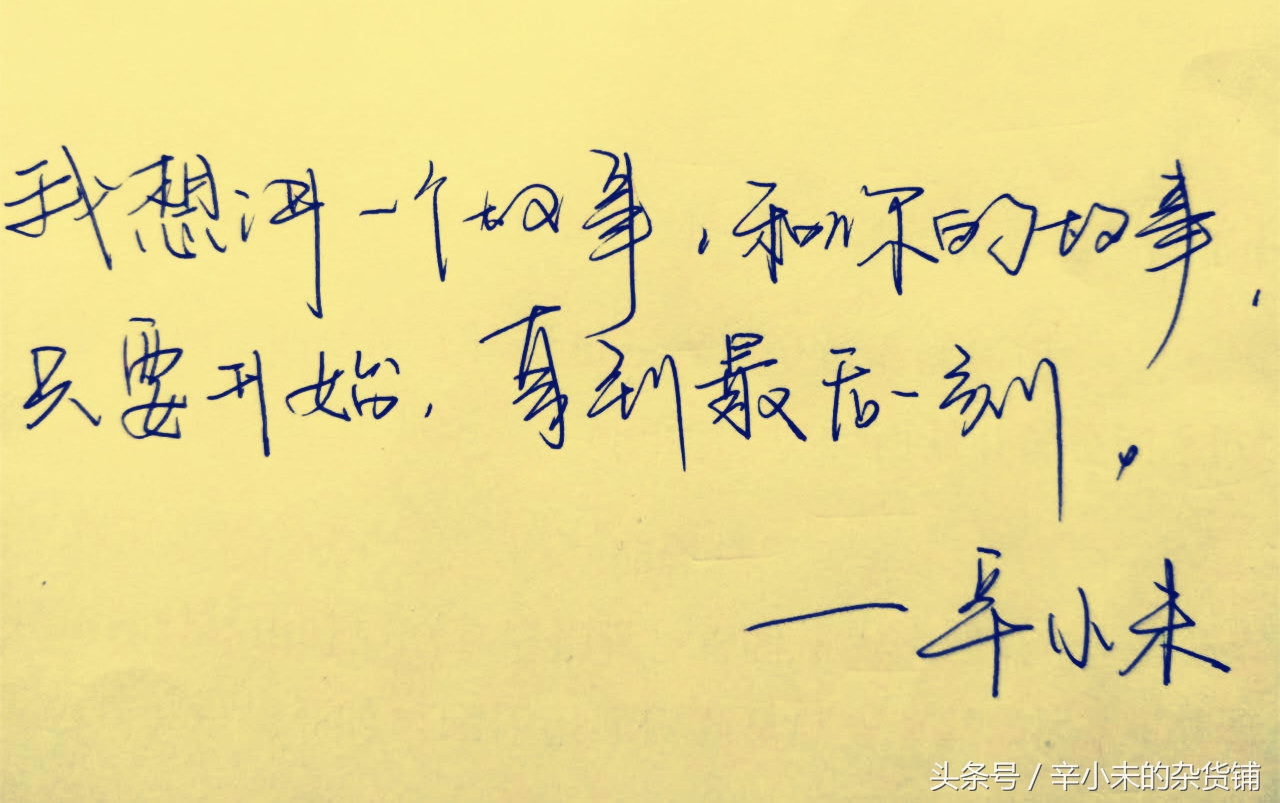 我想讲一个故事，和你的故事，
只要开始，直到最后一刻。
——辛小未
头条号 / 辛小未的杂货铺